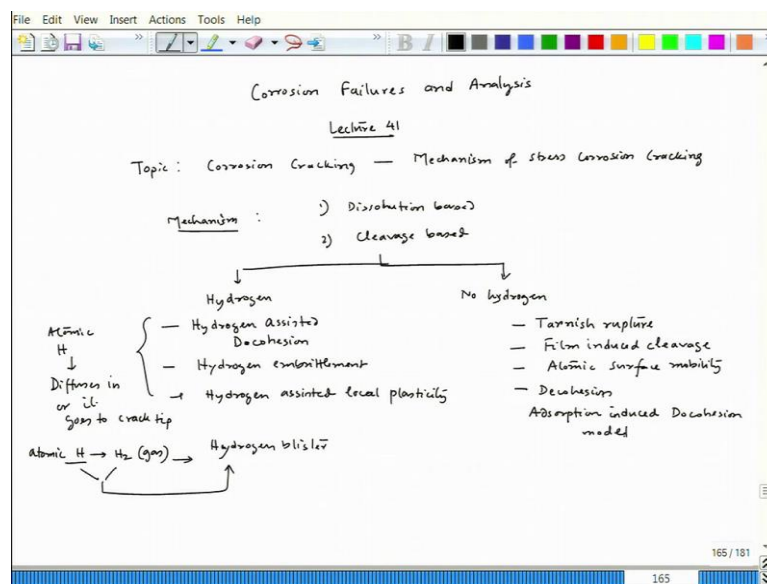 File Edit View Insert Actions Tools Help
Corrosion Failures and Analysis
Lecture 41
Topic : Corrosion Cracking — Mechanism of stress corrosion cracking
Mechanism : 1) Dissolution based
2) Cleavage based
Hydrogen
No hydrogen
Atomic
H
Diffuses in
or it
goes to crack tip
— Hydrogen assisted
Decohesion
— Hydrogen embrittlement
→ Hydrogen assisted local plasticity
— Tarnish rupture
— Film induced cleavage
— Atomic surface mobility
— Decohesion
Adsorption induced Decohesion
model
atomic H → H2 (gas) → Hydrogen blister
165 / 181
165